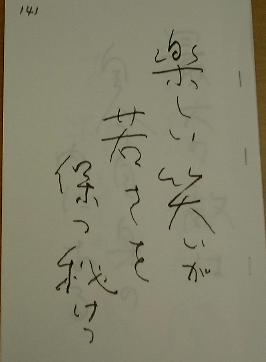 141
楽しい笑いが
若さを
保つ秘けつ